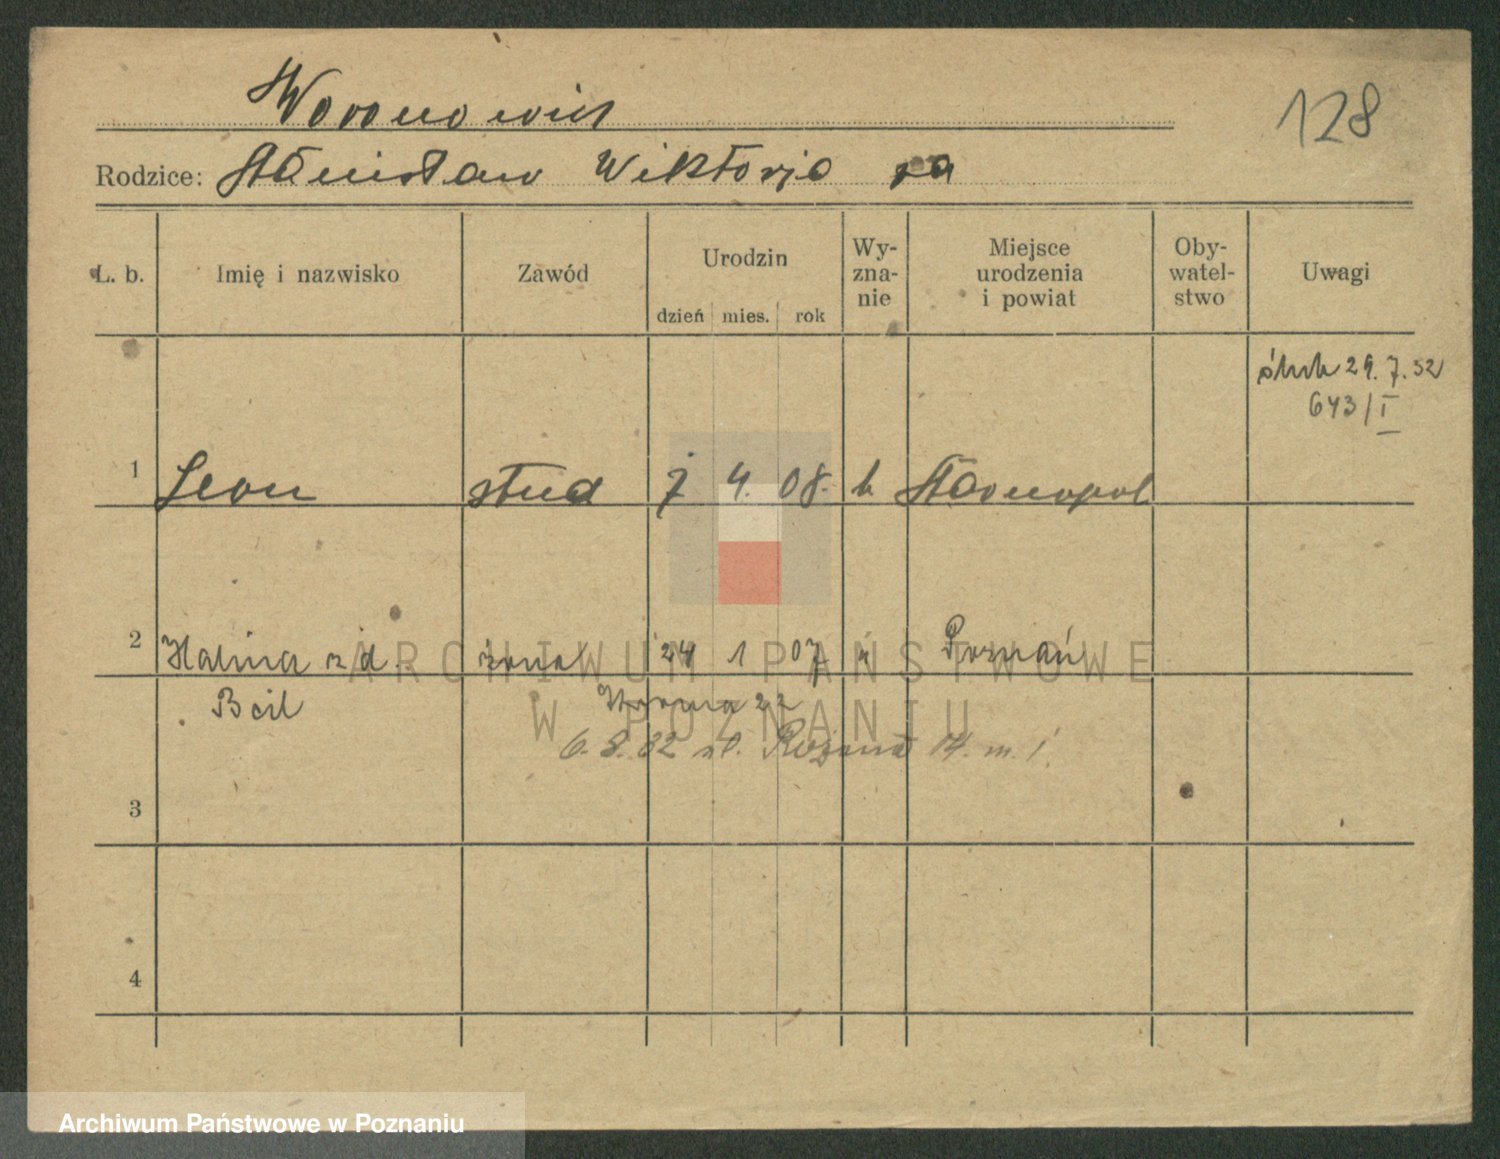 Woronowicz
128
Rodzice: Stanisław Wiktorja
L. b. Imię i nazwisko Zawód Urodzin dzień mies. rok Wy-zna-nie Miejsce urodzenia i powiat Oby-watel-stwo Uwagi
ślub 29.7.32
643/I
1 Leon stud 7 4. 08. k Starnopol
2 Halina z d. żona 24 1 07 k Poznań
22
6.8.32 ul. Różana 14. m. 1
3
4
ARCHIWUM PAŃSTWOWE
W POZNANIU
Archiwum Państwowe w Poznaniu